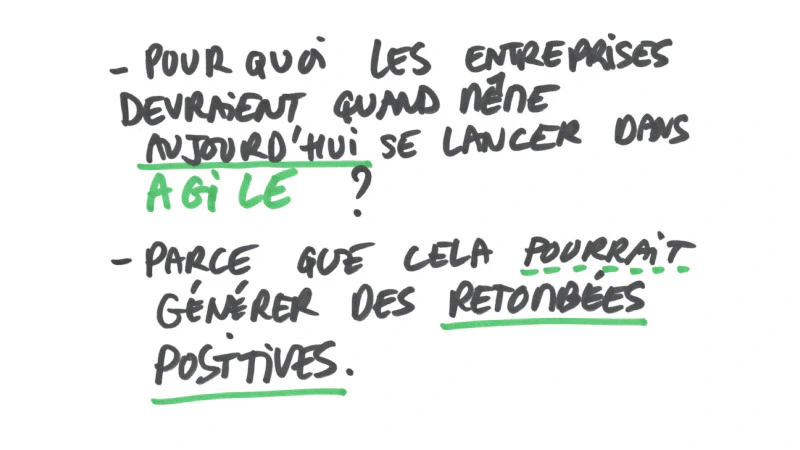 - POURQUOI LES ENTREPRISES
DEVRAIENT QUAND MÊME
AUJOURD'HUI SE LANCER DANS
AGILE ?
- PARCE QUE CELA POURRAIT
GÉNÉRER DES RETOMBÉES
POSITIVES.